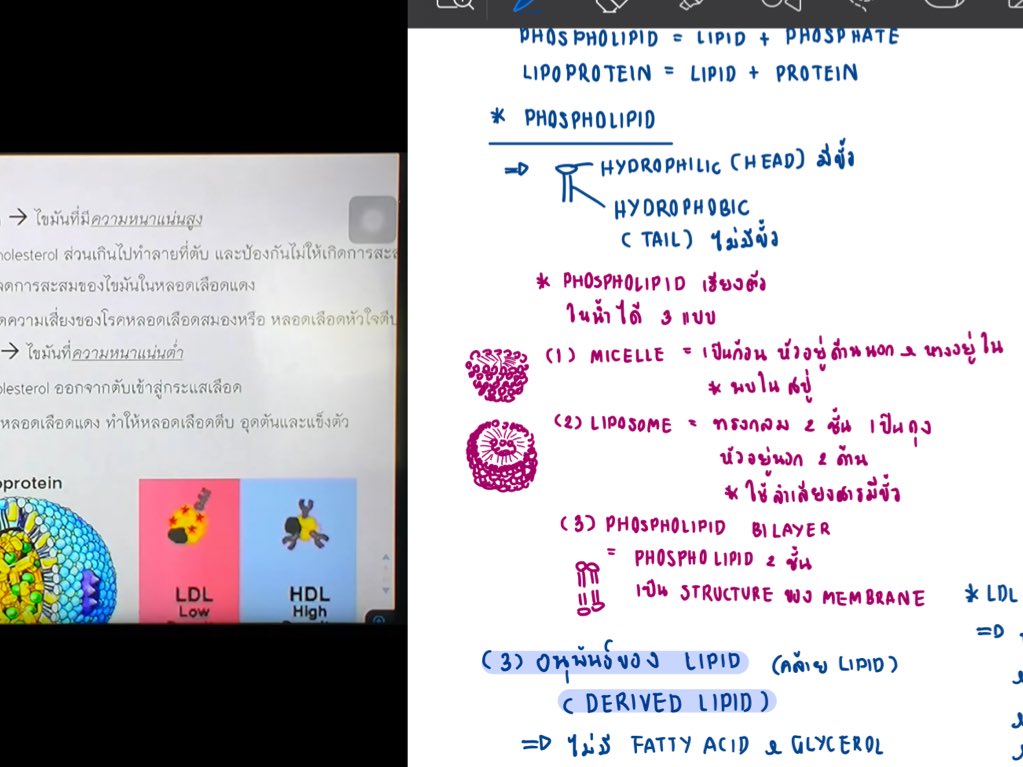 → ไขมันที่มีความหนาแน่นสูง
holesterol ส่วนเกินไปทำลายที่ตับ และป้องกันไม่ให้เกิดการสะส
ลดการสะสมของไขมันในหลอดเลือดแดง
ดความเสี่ยงของโรคหลอดเลือดสมองหรือ หลอดเลือดหัวใจตีบ
→ ไขมันที่ความหนาแน่นต่ำ
olesterol ออกจากตับเข้าสู่กระแสเลือด
หลอดเลือดแดง ทำให้หลอดเลือดตีบ อุดตันและแข็งตัว
oprotein
LDL
Low
HDL
High
PHOSPHOLIPID = LIPID + PHOSPHATE
LIPOPROTEIN = LIPID + PROTEIN
* PHOSPHOLIPID
⇒ HYDROPHILIC (HEAD) มีขั้ว
HYDROPHOBIC
(TAIL) ไม่มีขั้ว
* PHOSPHOLIPID เรียงตัว
ในน้ำได้ 3 แบบ
(1) MICELLE = เป็นก้อน หัวอยู่ด้านนอก & หางอยู่ใน
* พบใน สบู่
(2) LIPOSOME = ทรงกลม 2 ชั้น เป็นถุง
หัวอยู่นอก 2 ด้าน
* ใช้ลำเลียงสารมีขั้ว
(3) PHOSPHOLIPID BILAYER
= PHOSPHOLIPID 2 ชั้น
เป็น STRUCTURE ของ MEMBRANE
* LDL
⇒
(3) อนุพันธ์ของ LIPID (คล้าย LIPID)
(DERIVED LIPID)
⇒ ไม่มี FATTY ACID & GLYCEROL